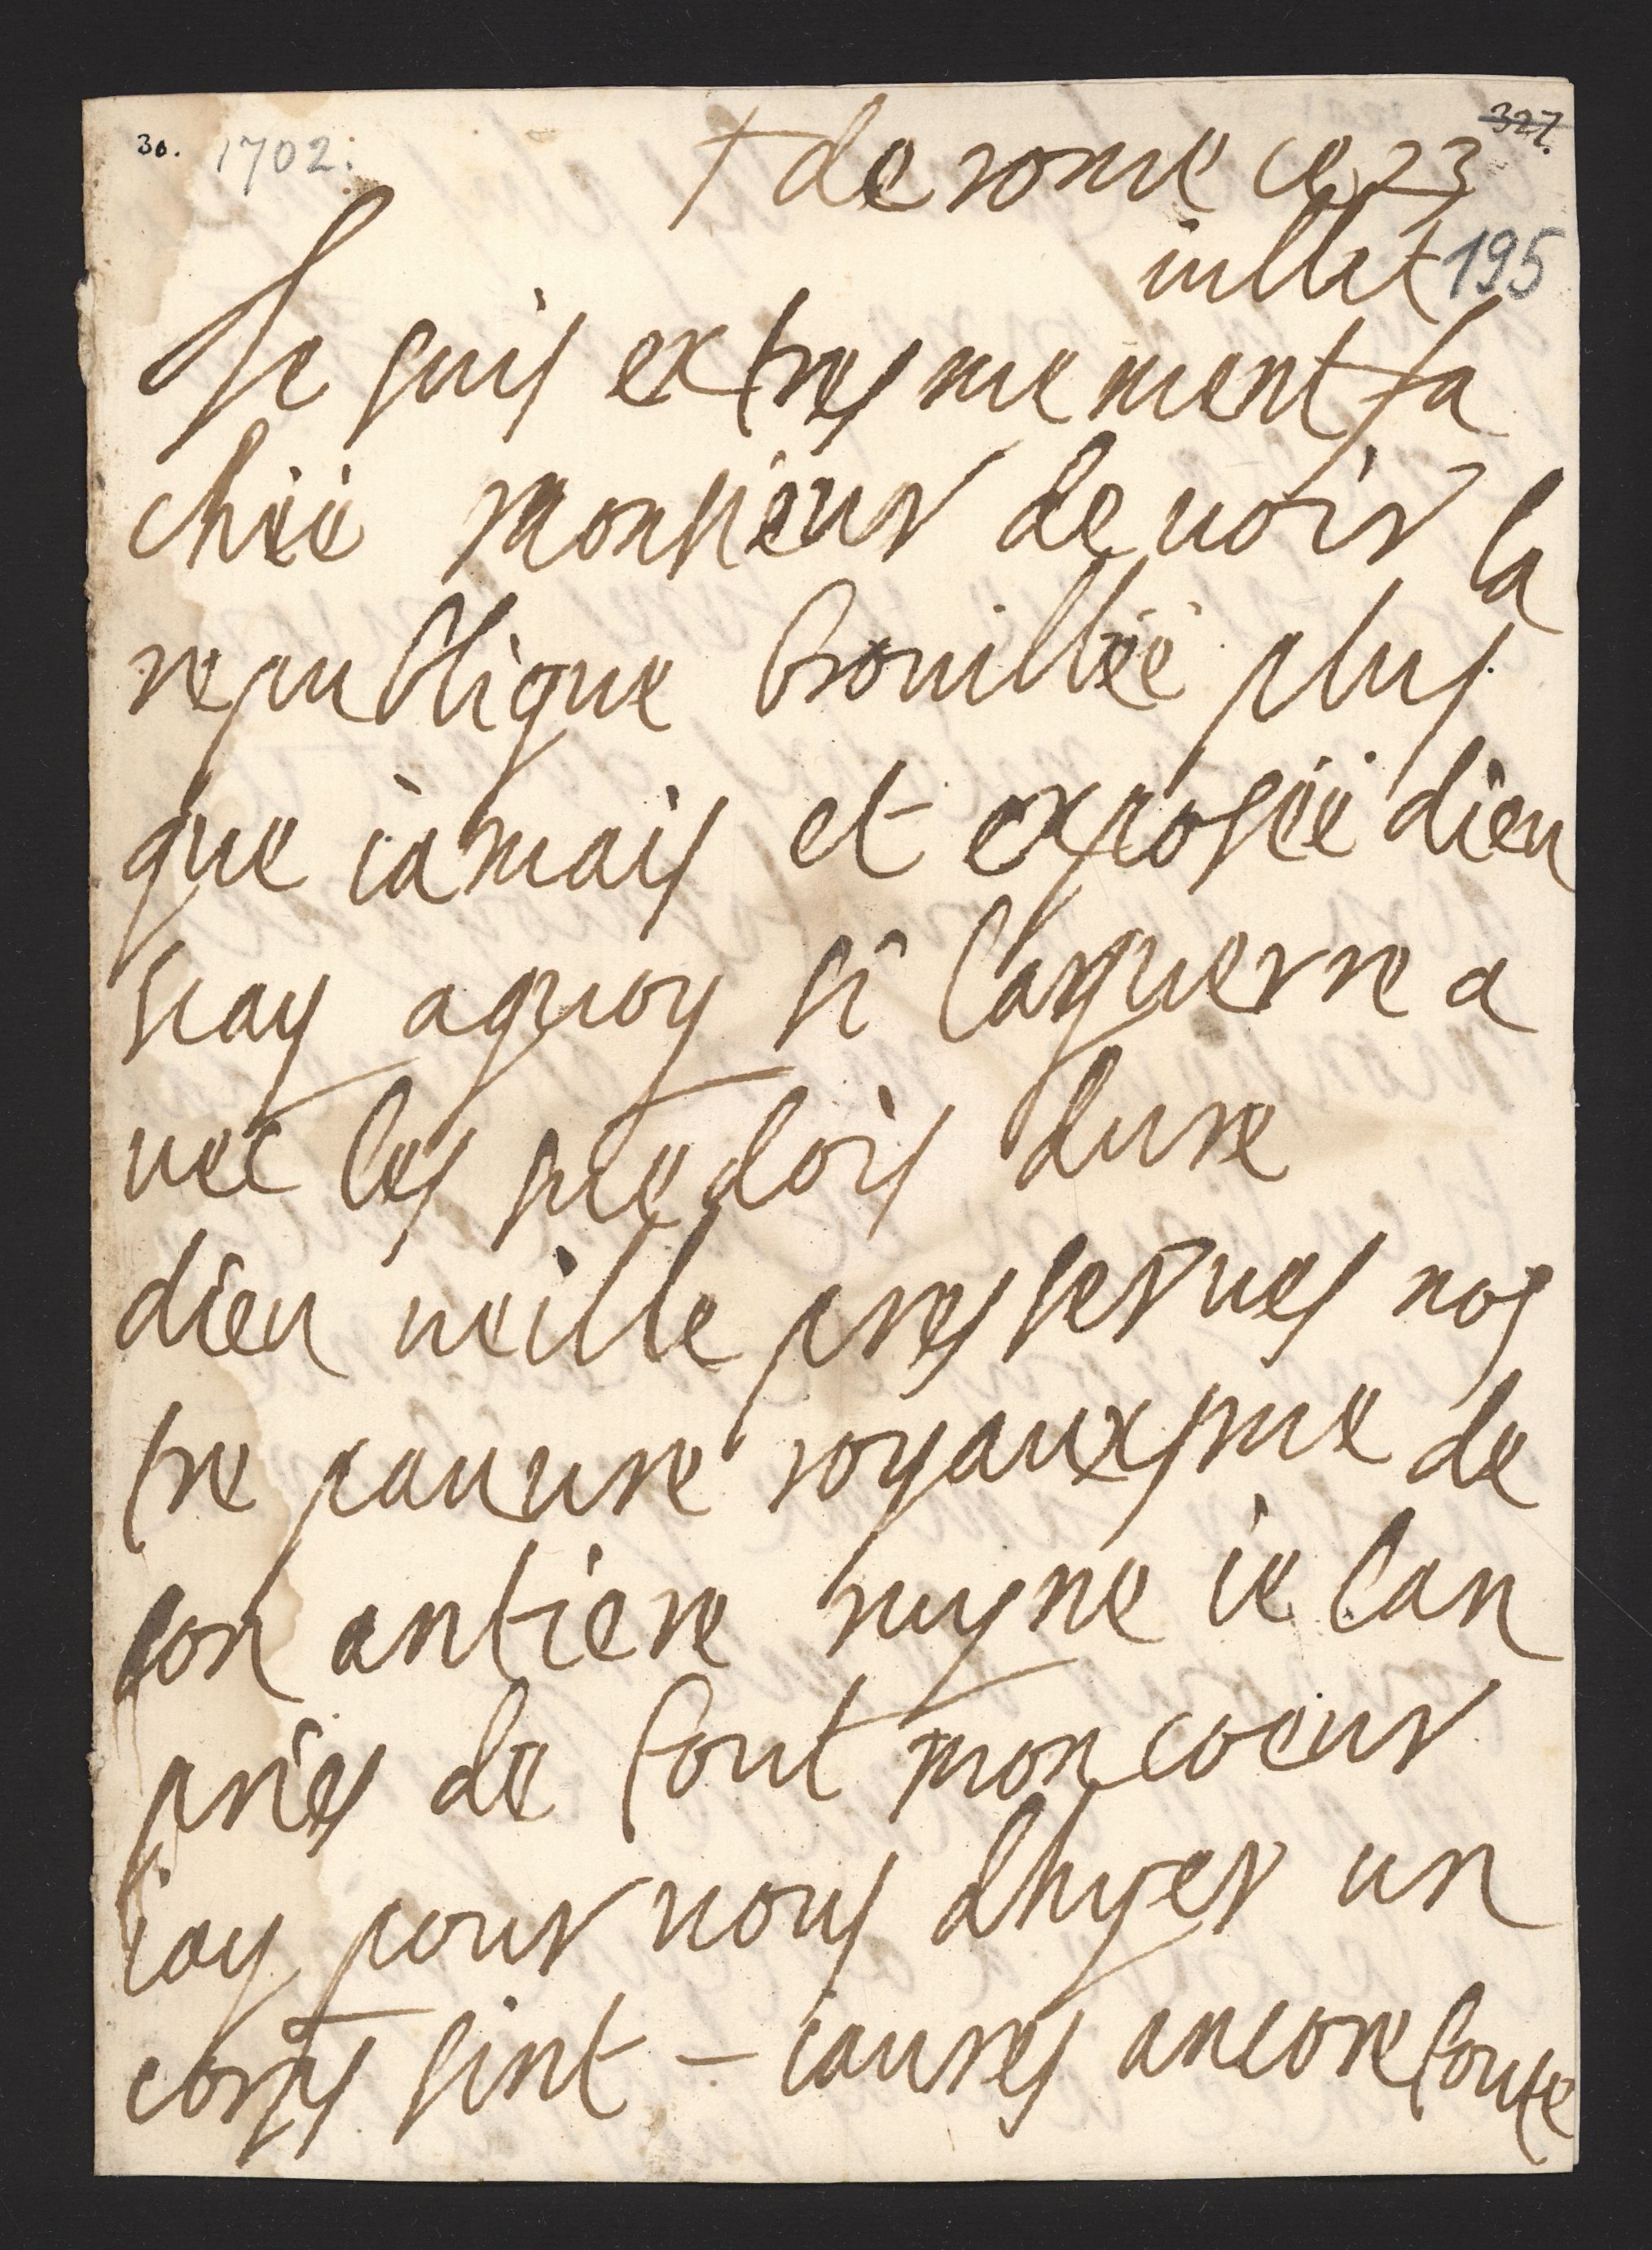 30. 1702: 327.
+ de rome ce 23
iullet 195
Je suis extresmement fa
chéé monsieur de uoir la
republique brouilléé plus
que iamais et exposéé dieu
scay aquoy si laguerre a
uec les suedois dure
dieu ueille presserues nos
tre pauure royauxsme de
son antiere ruyne ie lan
pries de tout mon coeur
iay pour uous dhyer un
corps sint – iaures ancore toute